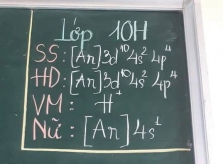 Lớp 10H
SS: [Ar]3d¹⁰4s²4p⁴
HD: [Ar]3d¹⁰4s²4p⁴
VM: H⁺
Nữ: [Ar]4s¹